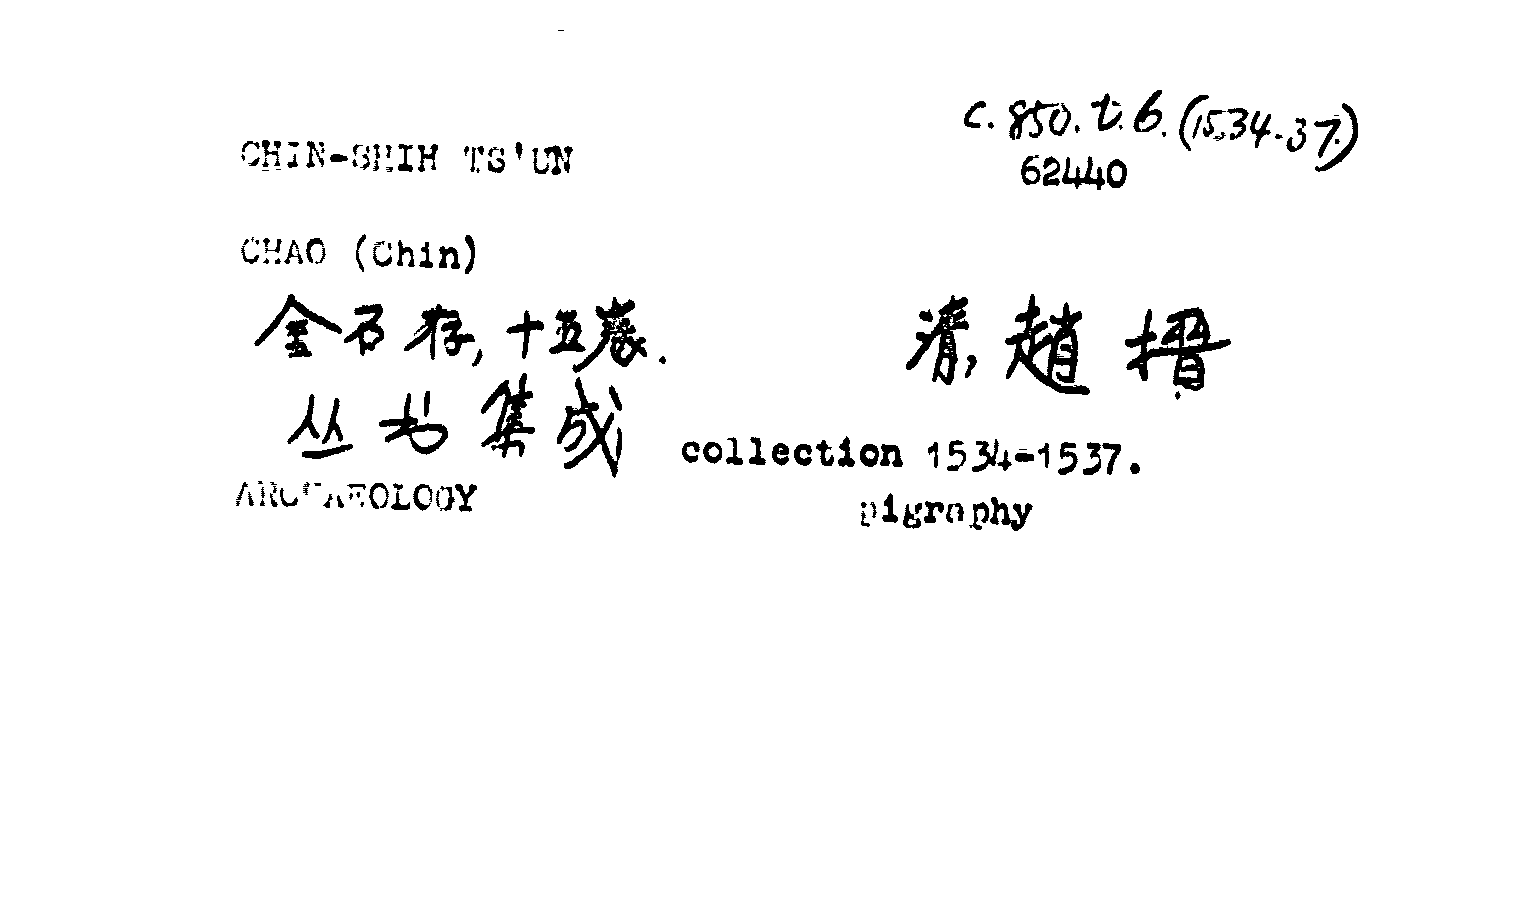 c. 850. t. 6. (1534-37.)
CHIN-SHIH TS'UN
62440
CHAO (Chin)
金石存, 十五卷.
清, 趙搢
丛书集成 collection 1534-1537.
ARCHAEOLOGY
pigraphy